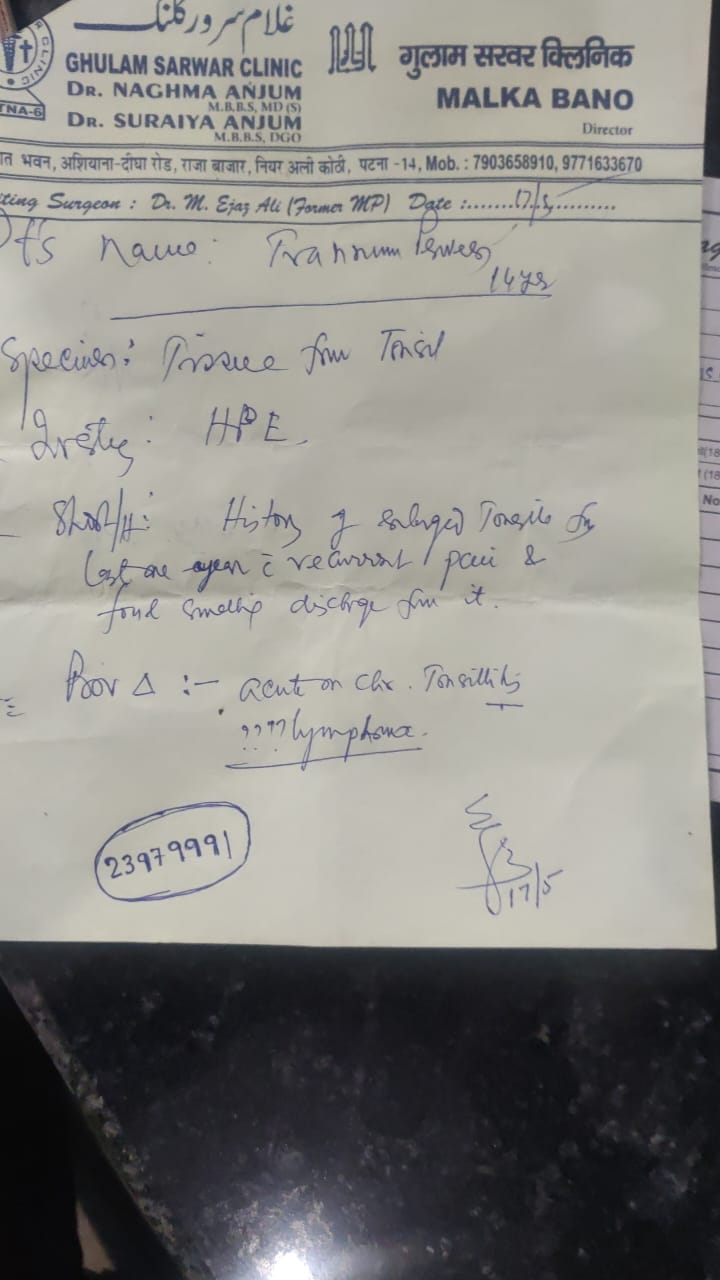 غلام سرور کلنک
CLINIC
TNA-6
GHULAM SARWAR CLINIC
DR. NAGHMA ANJUM
M.B.B.S, MD (S)
DR. SURAIYA ANJUM
M.B.B.S, DGO
गुलाम सरवर क्लिनिक
MALKA BANO
Director
त भवन, अशियाना-दीघा रोड, राजा बाजार, नियर अली कोठी, पटना -14, Mob. : 7903658910, 9771633670
iting Surgeon : Dr. M. Ejaz Ali (Former MP) Date :.......17/5..........
Pt's Name: Trannum
14 yrs
Specimen: Tissue from Tonsil
HPE
Short/H: History of enlarged Tonsils for
last one year c̄ recurrent pain &
foul smelling discharge from it.
Prov Δ :- acute on Chr. Tonsillitis
???? lymphoma.
23979991
17/5
No